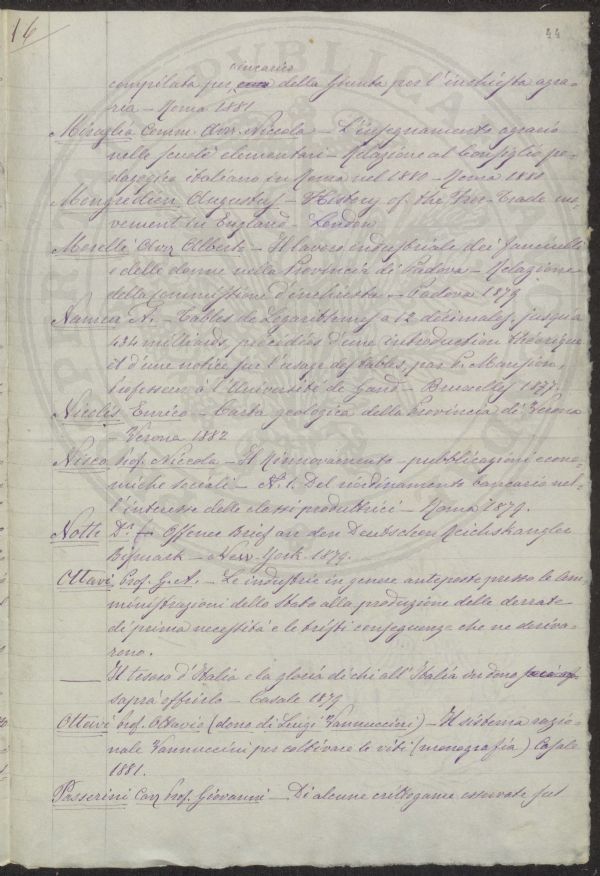 16
44
incarico
compilata per della Giunta per l'inchiesta agra-
ria – Roma 1881
Miraglia Comm. Avv. Niccola – L'insegnamento agrario
nelle scuole elementari – Relazione al Consiglio pe-
dagogico italiano in Roma nel 1880 – Roma 1880
Mongredien Augustus – History of the Free-Trade mo-
vement in England – London
Morelli Avv. Alberto – Il lavoro industriale dei fanciulli
e delle donne nella Provincia di Padova – Relazione
della Commissione d'inchiesta. – Padova 1879
Namur A. – Tables de Logarithmes à 12 décimales, jusqu'a
434 milliards, précédées d'une introduction théorique
et d'une notice sur l'usage des tables, par P. Mansion,
professeur à l'Université de Gand – Bruxelles 1877.
Nicolis Enrico – Carta geologica della Provincia di Verona
– Verona 1882
Nisco Prof. Niccola – Il Rinnovamento – pubblicazioni econo-
miche sociali – N. 1. Del riordinamento bancario nel-
l'interesse delle classi produttrici – Roma 1879.
Nolte Dr. Offener Brief an den Deutschen Reichskanzler
Bismark – New-York 1879.
Ottavi Prof. G. A. – Le industrie in genere anteposte presso le Am-
ministrazioni dello Stato alla produzione delle derrate
di prima necessità e le tristi conseguenze che ne deriva-
rono.
— Il tesoro d'Italia e la gloria di chi all'Italia in dono
saprà offrirlo – Casale 1877
Ottavi Prof. Ottavio (dono di Luigi Vannuccini) – Il sistema razio-
nale Vannuccini per coltivare le viti (monografia) Casale
1881.
Passerini Cav. Prof. Giovanni – Di alcune crittogame osservate sul